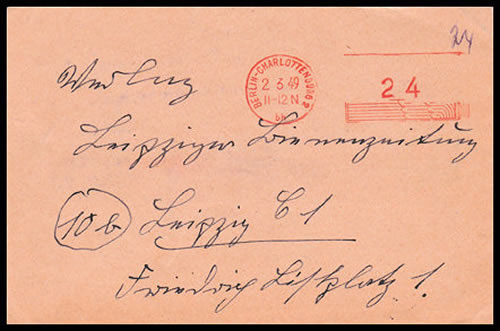 24
BERLIN-CHARLOTTENBURG 2
2.3.49
11-12 N
bh
24
Verlag
Leipziger Bienenzeitung
10b Leipzig C 1
Friedrich Listplatz 1.